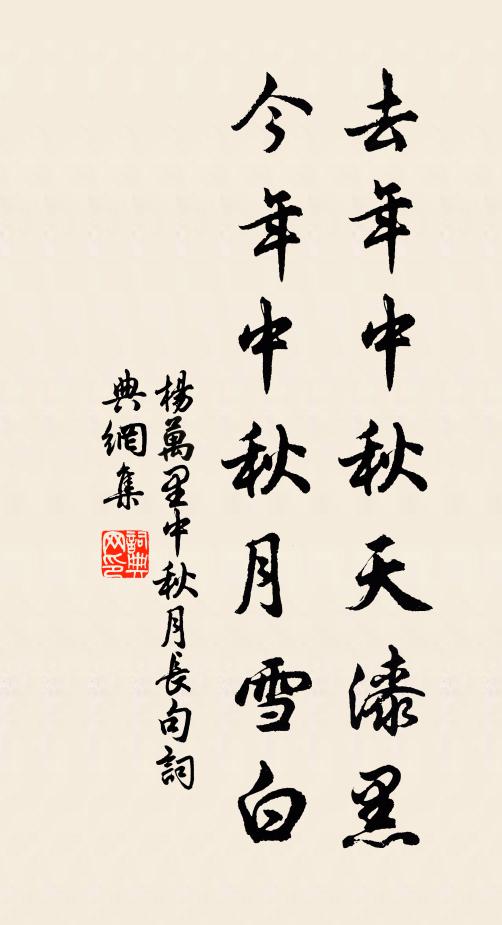 去年中秋天漆黑
今年中秋月雪白
楊萬里中秋月長句詞
典網集
詞典
网印